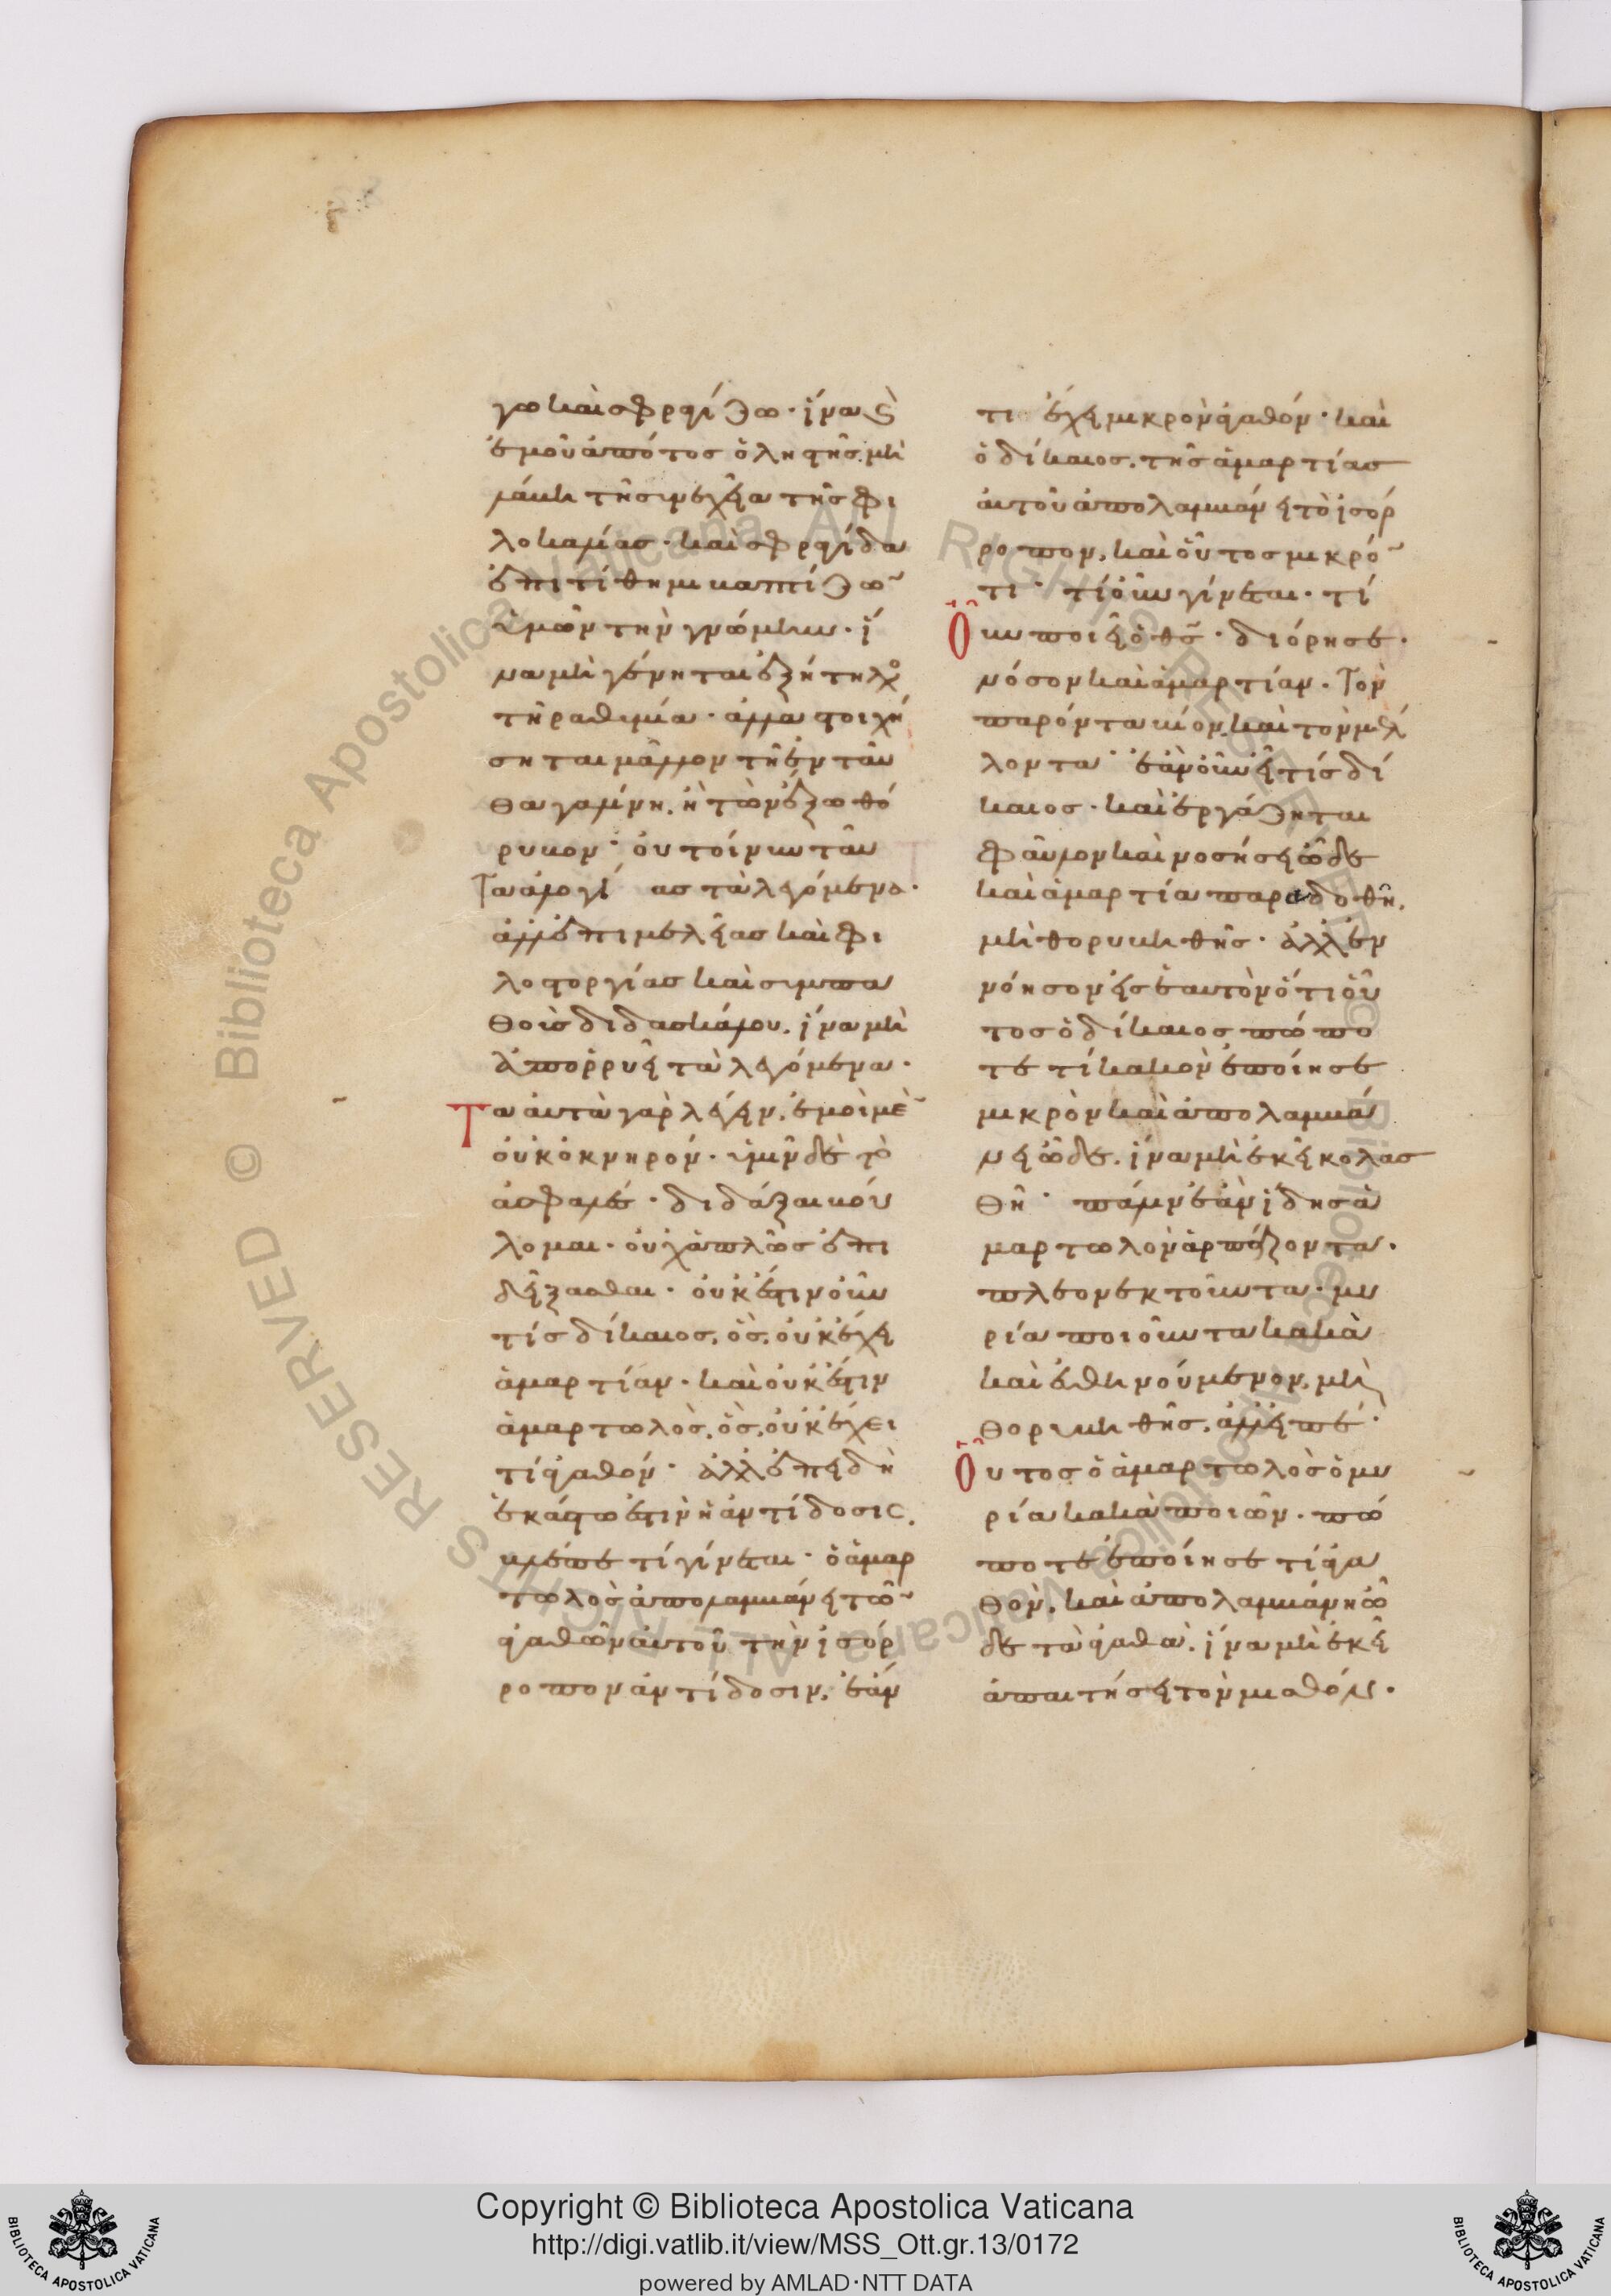 γω καὶ σφραγίζω· ἵνα δι
ἐμοῦ ἀπό τοσ ὅλη τῆσ, μὴ
λάβη τῆ συνεχεῖα τῆσ φι
λοκαλίασ· καὶ σφραγίδα
ἐπιτίθημι βαπτίζων
ὑμῶν τὴν γνώμην· ἵ
να μὴ γένηται ἐξήτηλοσ
τῆ ραθυμία· ἀλλὰ στοιχή
ση ται μᾶλλον τῆ ἐνταῦ
θα γαλήνη, ἢ τῶν ἔξω θο
ρύβον· οὐ τοίνυν ταυ
τα ἀλογίασ τὰ λεγόμενα·
ἀλλ' ἐπιμελείασ καὶ φι
λοστοργίασ καὶ συμπα
θοῦσ διδασκάλου, ἵνα μὴ
ἀπορρυεῖ τὰ λεγόμενα·
Τα αὐτὰ γὰρ λέγειν, ἐμοὶ μὲν
οὐκ ὀκνηρόν· ὑμῖν δὲ τὸ
ἀσφαλέσ· διδάξαι βού
λομαι· οὐχ ἁπλῶσ ἐπι
δείξασθαι· οὐκ ἔστιν οὖν
τίσ δίκαιοσ, ὃσ, οὐκ ἔχει
ἁμαρτίαν· καὶ οὐκ ἔστιν
ἁμαρτωλὸσ, ὃσ, οὐκ ἔχει
τί ἀγαθόν· ἀλλ' ἐπειδὴ
ἑκάστω ἐστιν ἡ ἀντίδοσισ,
βλέπε τί γίνεται· ὁ ἁμαρ
τωλὸσ ἀπολαμβάνει τῶν
ἀγαθῶν αὐτοῦ τὴν ἰσόρ
ροπον ἀντίδοσιν, ἐάν
τι ἔχει μικρὸν ἀγαθόν· καὶ
ὁ δίκαιοσ, τῆσ ἁμαρτίασ
αὐτοῦ ἀπολαμβάνει τὸ ἰσόρ
ροπον, καὶ οὗτοσ μικρόν
τι· τί οὖν γίνεται· τί
Οὖν ποιεῖ ὁ θσ· διόρησε·
νόσον καὶ ἁμαρτίαν· Τον
παρόντα βίον, καὶ τὸν μέλ
λοντα· ἐὰν οὖν εἶ τίσ δί
καιοσ· καὶ ἐργάζηται
φαῦλον καὶ νοσήσει ὧδε
καὶ ἁμαρτία παραδοθῆ,
μὴ θορυβηθῆσ· ἀλλ' ἐν
νόησον εἰσ ἑαυτὸν ὅτι οὗ
τοσ ὁ δίκαιοσ πώπο
τε τί κακὸν ἐποίησε
μικρὸν καὶ ἀπολαμβά
νει ὧδε, ἵνα μὴ ἐκεῖ κολασ
θῆ· πάλιν ἐὰν ἴδησ ἁ
μαρτωλὸν ἁρπάζοντα·
πλεονεκτοῦντα· μυ
ρία ποιοῦντα κακὰ
καὶ εὐθηνούμενον, μὴ
θορυβηθῆσ, ἀλλ' εἰπέ·
Οὗτοσ ὁ ἁμαρτωλὸσ ὁ μυ
ρία κακὰ ποιῶν· πώ
ποτε ἐποίησε τί ἀγα
θὸν, καὶ ἀπολαμβάνη ὧ
δε τὰ ἀγαθὰ, ἵνα μὴ ἐκεῖ
ἀπαιτήσει τὸν μισθόν·
Copyright © Biblioteca Apostolica Vaticana
http://digi.vatlib.it/view/MSS_Ott.gr.13/0172
powered by AMLAD·NTT DATA